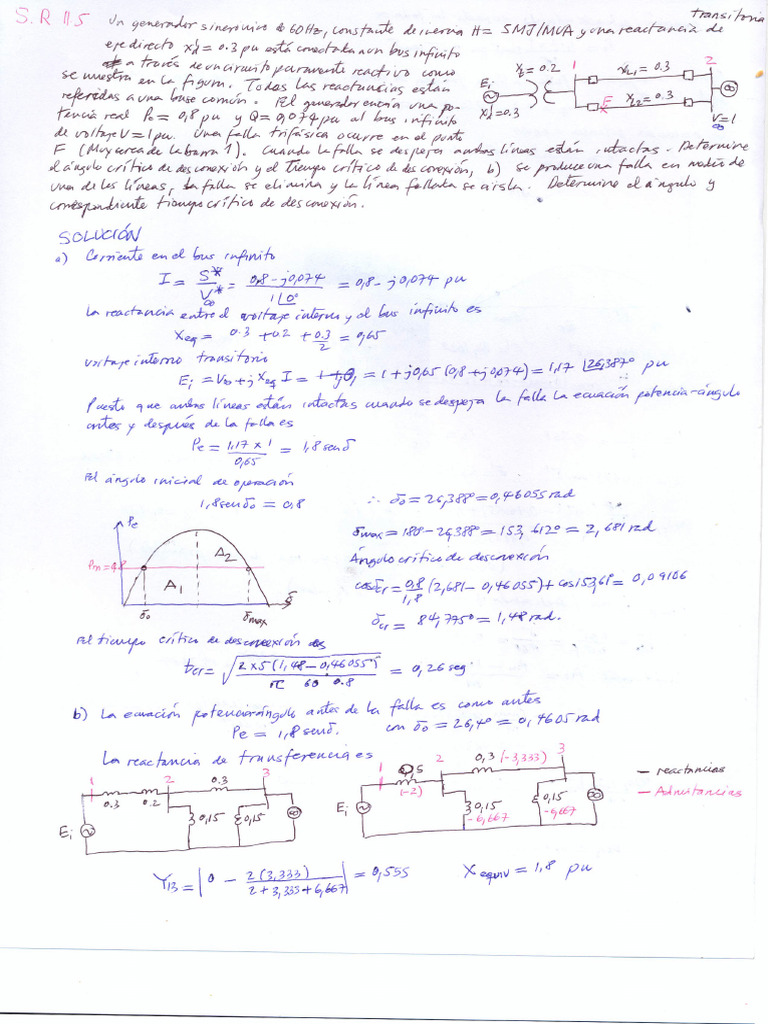 transitoria
S.R 115 Un generador sincrónico de 60Hz, constante de inercia H= 5MJ/MVA y una reactancia de
eje directo x'd = 0.3 pu está conectado a un bus infinito
a través de un circuito puramente reactivo como
se muestra en la figura. Todas las reactancias están
referidas a una base común. El generador envía una po-
tencia real Po = 0,8 pu y Q = 0,074 pu al bus infinito
de voltaje V = 1 pu. Una falla trifásica ocurre en el punto
F (Muy cerca de la barra 1). Cuando la falla se despeja ambas líneas están intactas. Determine
el ángulo crítico de desconexión y el tiempo crítico de desconexión, b) se produce una falla en medio de
una de las líneas, la falla se elimina y la línea fallada se aisla. Determine el ángulo y
correspondiente tiempo crítico de desconexión.
Xt = 0.2
1
XL1 = 0.3
2
Ei
X'd = 0.3
F
XL2 = 0.3
∞
V = 1
∞
SOLUCIÓN
a) Corriente en el bus infinito
I = S*/V∞* = (0,8 - j0,074)/(1∠0°) = 0,8 - j0,074 pu
La reactancia entre el voltaje interno y el bus infinito es
Xeq = 0.3 + 0.2 + 0.3/2 = 0,65
voltaje interno transitorio
Ei = V∞ + j Xeq I = 1 + j0,65 (0,8 + j0,074) = 1,17 ∠26,387° pu
Puesto que ambas líneas están intactas cuando se despeja la falla la ecuación potencia-ángulo
antes y después de la falla es
Pe = (1,17 x 1)/0,65 = 1,8 senδ
El ángulo inicial de operación
1,8 senδo = 0,8 ∴ δo = 26,388° = 0,46055 rad
Pe
Pm = 0.8
A1
A2
δo
δmax
δ
δmax = 180 - 26,388° = 153,612° = 2,681 rad
Ángulo crítico de desconexión
cosδcr = 0,8/1,8 (2,681 - 0,46055) + cos153,61° = 0,09106
δcr = 84,775° = 1,48 rad.
El tiempo crítico de desconexión es
tcr = √(2 x 5 (1,48 - 0,46055)/(π 60 0.8)) = 0,26 seg
b) La ecuación potencia-ángulo antes de la falla es como antes
Pe = 1,8 senδ. con δo = 26,4° = 0,4605 rad
La reactancia de transferencia es
1
2
0.3
3
0.3
0.2
0,15
0,15
Ei
∞
1
0,5
(-2)
2
0,3 (-3,333)
3
0,15
-6,667
0,15
-6,667
Ei
∞
— reactancias
— Admitancias
Y13 = |0 - 2(3,333)/(2 + 3,333 + 6,667)| = 0,555 Xequiv = 1,8 pu